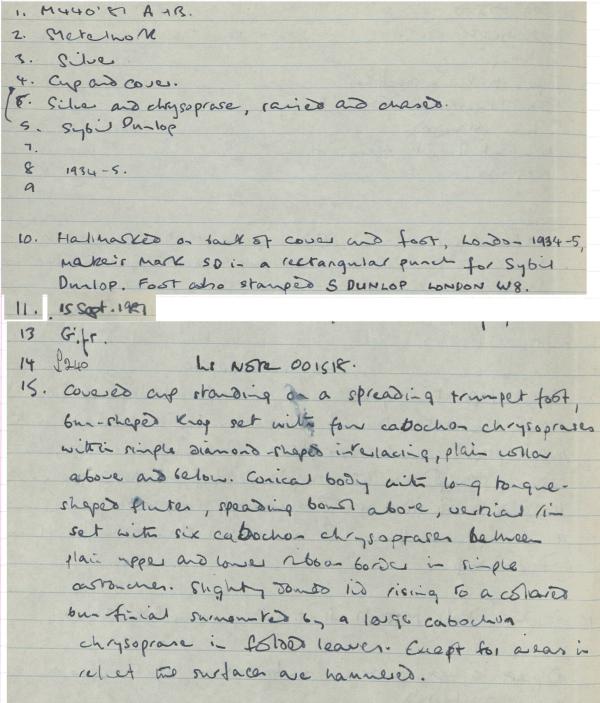 1. M440'81 A+B.
2. Metalwork
3. Silver
4. Cup and cover.
5. Silver and chrysoprase, raised and chased.
5. Sybil Dunlop
7.
8 1934-5.
9
10. Hallmarked on back of cover and foot, London 1934-5,
maker's mark SD in a rectangular punch for Sybil
Dunlop. Foot also stamped S DUNLOP LONDON W8.
11. 15 Sept. 1981
13 G.f.r.
14 £240 NSR 001518.
15. Covered cup standing on a spreading trumpet foot,
bun-shaped knop set with four cabochon chrysoprases
within simple diamond-shaped interlacing, plain collar
above and below. Conical body with long tongue-
shaped flutes, spreading bowl above, vertical rim
set with six cabochon chrysoprases between
plain upper and lower ribbon border in simple
cartouches. Slightly domed lid rising to a collared
bun finial surmounted by a large cabochon
chrysoprase in folded leaves. Except for areas in
relief the surfaces are hammered.